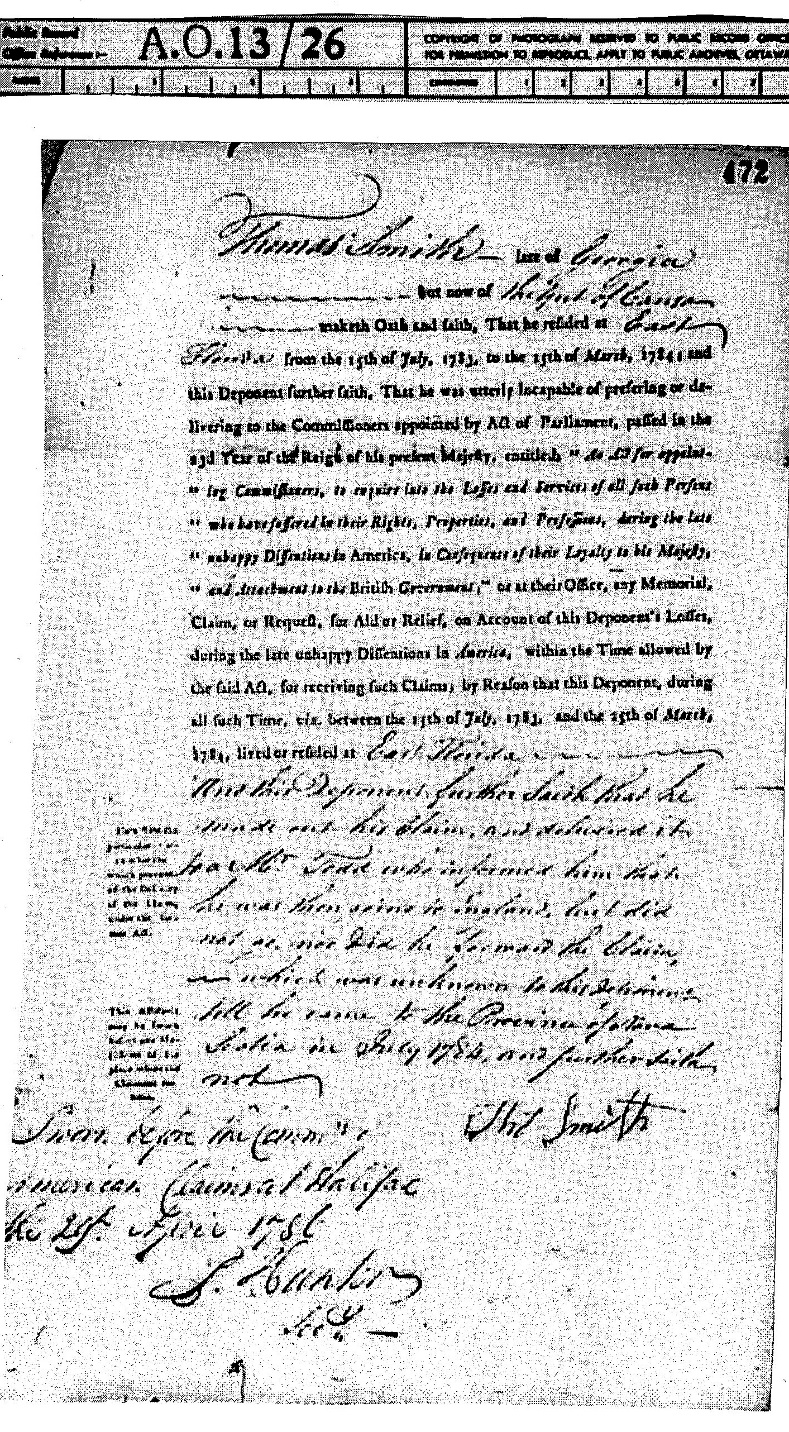 Public Record
Office Reference :-
A.O.13/26
COPYRIGHT OF PHOTOGRAPH RESERVED TO PUBLIC RECORD OFFICE
FOR PERMISSION TO REPRODUCE, APPLY TO PUBLIC ARCHIVES, OTTAWA
472
Thomas Smith late of Georgia
but now of the Gut of Canso
maketh Oath and saith, That he resided at East
Florida from the 15th of July, 1783, to the 25th of March, 1784; and
this Deponent further saith, That he was utterly incapable of prefering or de-
livering to the Commissioners appointed by Act of Parliament, passed in the
23d Year of the Reign of his present Majesty, entitled, " An Act for appoint-
" ing Commissioners, to enquire into the Losses and Services of all such Persons
" who have suffered in their Rights, Properties, and Professions, during the late
" unhappy Dissentions in America, in Consequence of their Loyalty to his Majesty,
" and Attachment to the British Government," or at their Office, any Memorial,
Claim, or Request, for Aid or Relief, on Account of this Deponent's Losses,
during the late unhappy Dissentions in America, within the Time allowed by
the said Act, for receiving such Claims; by Reason that this Deponent, during
all such Time, viz. between the 15th of July, 1783, and the 25th of March,
1784, lived or resided at East Florida
And this Deponent further Saith that he
made out his Claim, and delivered it
to a Mr. Todd who informed him that
he was then going to England, but did
not go, nor did he forward the Claim,
which was unknown to this deponent
till he came to the Province of Nova
Scotia in July 1784, and further saith
not
of the Delivery
of the Claim,
under the
This Affidavit
may be sworn
place where
Thos Smith
Sworn before the Commrs
American Claims at Halifax
the 21st. April 1786
S. Hunter
Secy.